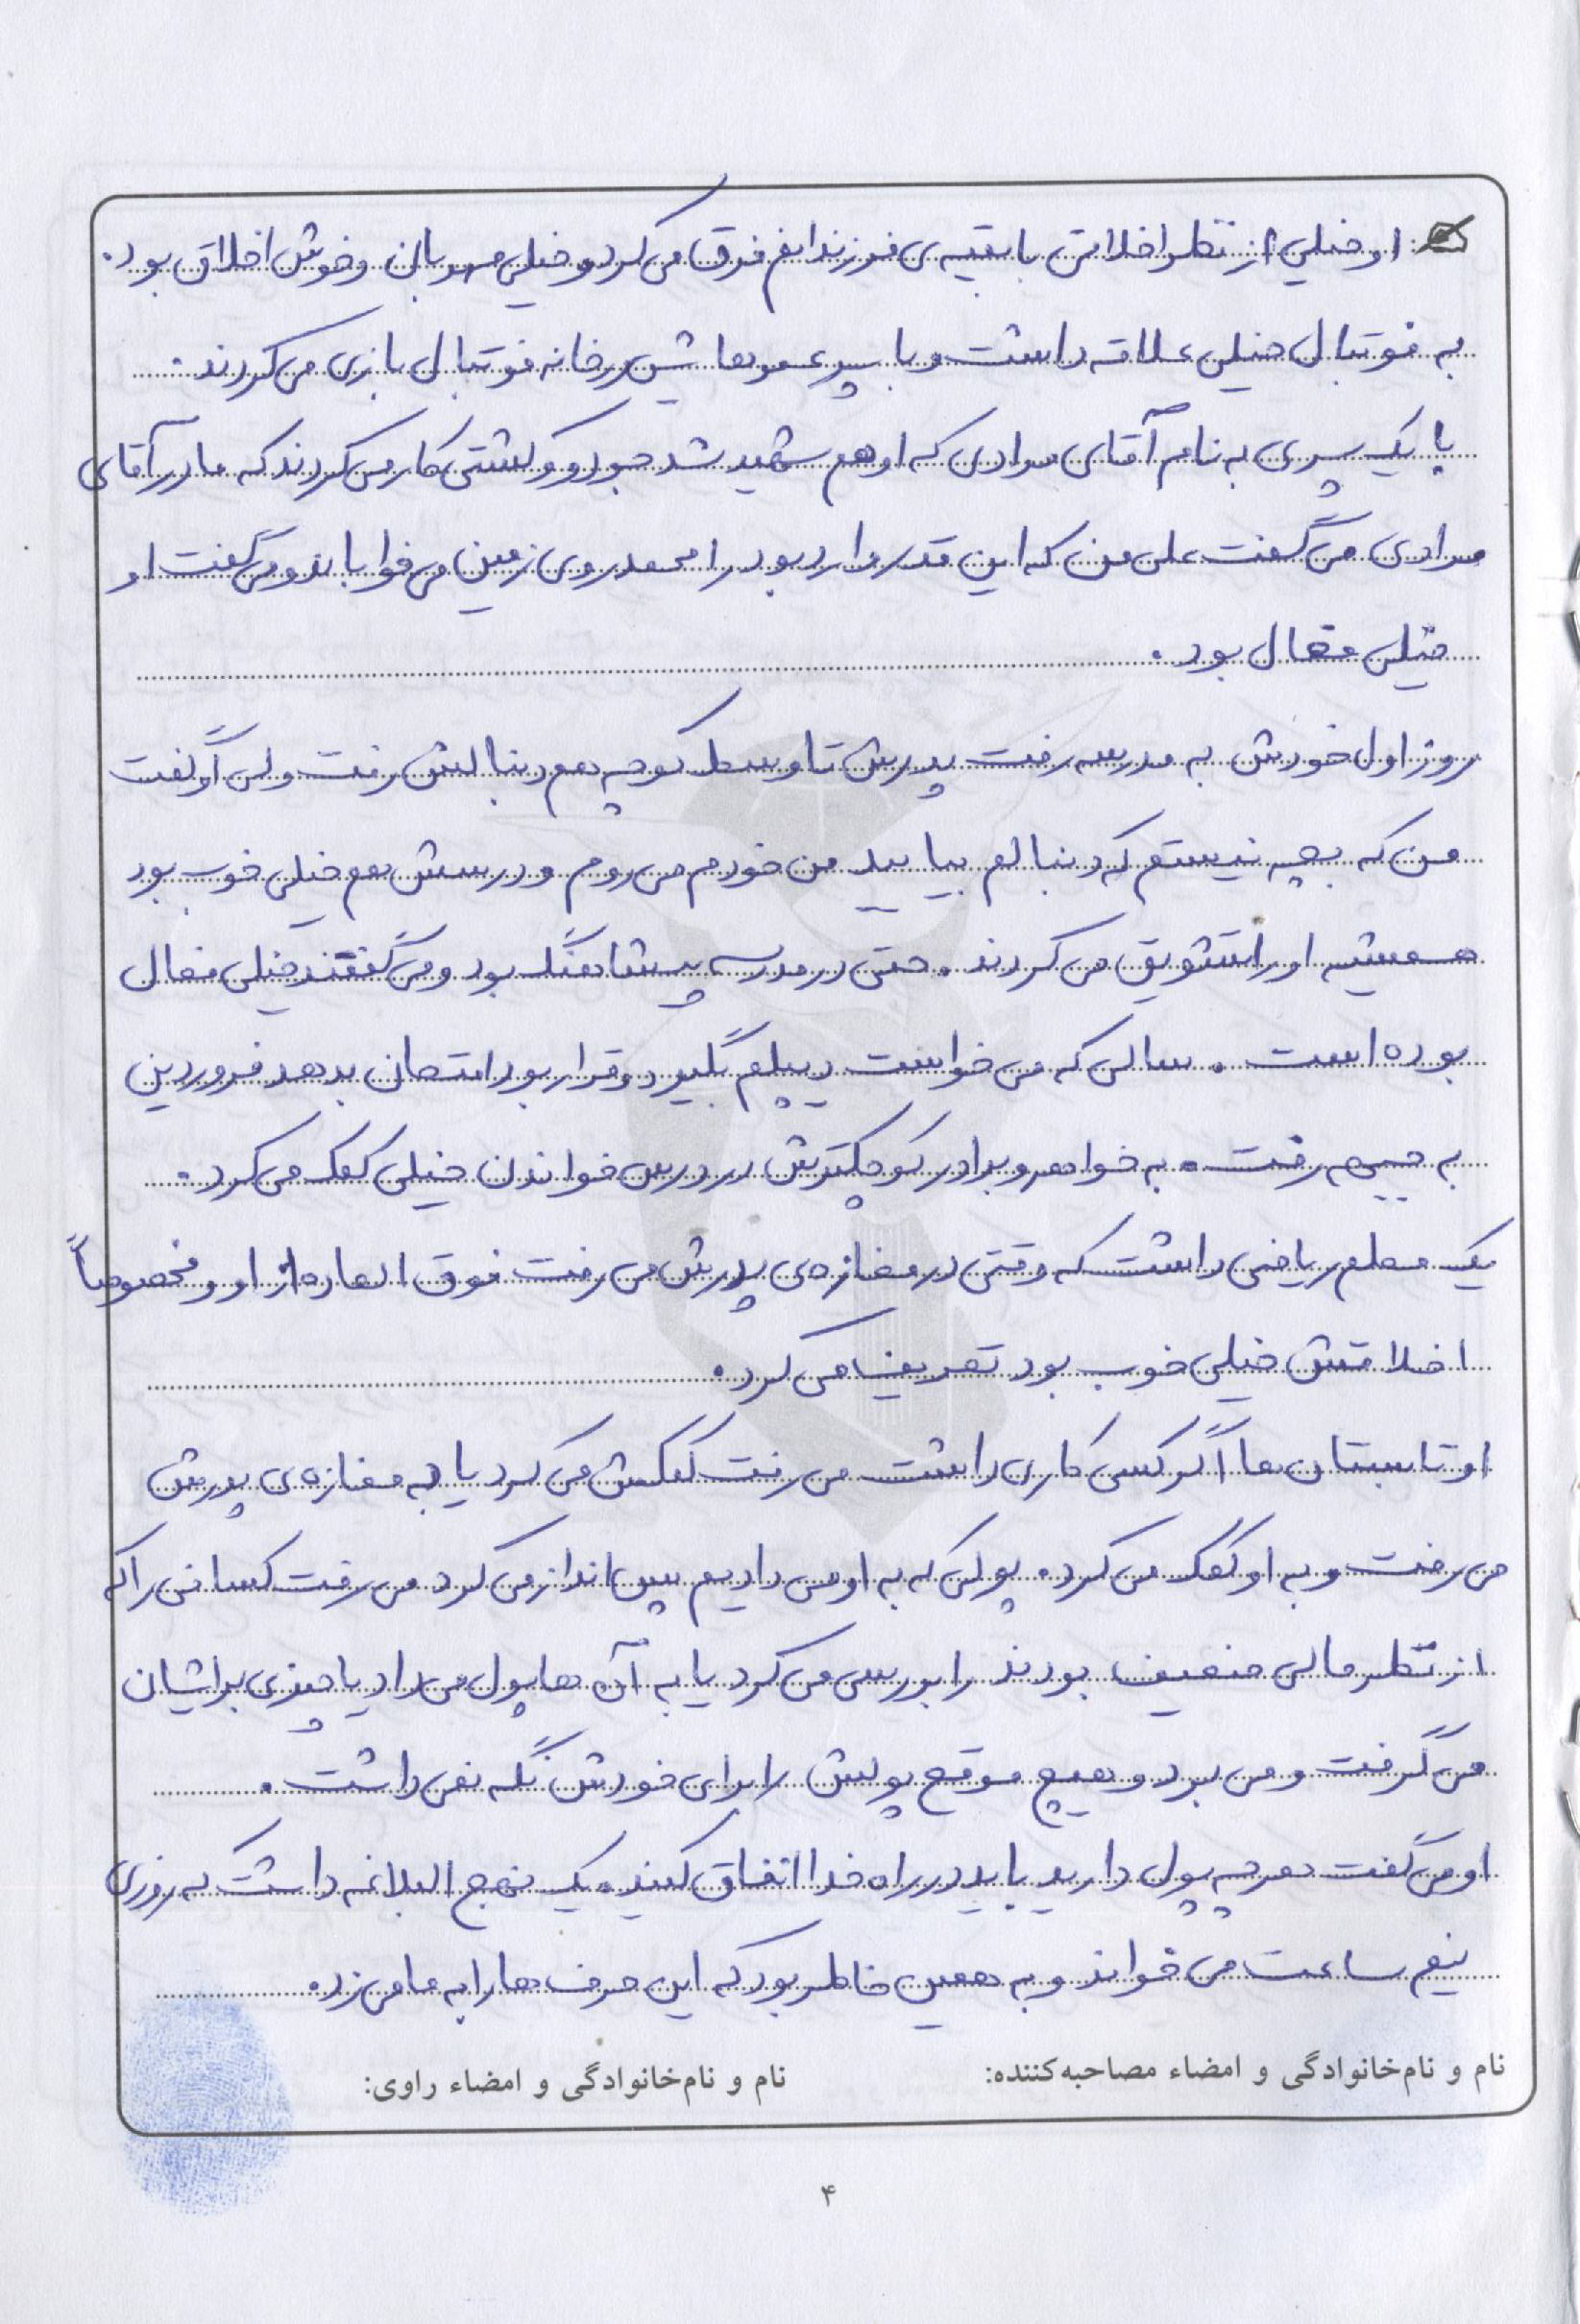 او خیلی از نظر اخلاق با بقیه‌ی فرزندانم فرق می کرد و خیلی مهربان و خوش اخلاق بود.
به فوتبال خیلی علاقه داشت و با پسر عموهایش در خانه فوتبال بازی می کردند.
با یک پسری به نام آقای مرادی که او هم شهید شد جودو و کشتی کار می کردند که مادر آقای
مرادی می گفت علی من که این قدر وارد بود را محمد روی زمین می خواباند و می گفت او
خیلی فعال بود.
روز اول خودش به مدرسه رفت پدرش تا وسط کوچه هم دنبالش رفت ولی او گفت
من که بچه نیستم که دنبالم بیایید من خودم می روم و درسش هم خیلی خوب بود
همیشه او را تشویق می کردند. حتی در مدرسه پیشاهنگ بود و می گفتند خیلی فعال
بوده است. سالی که می خواست دیپلم بگیرد و قرار بود امتحان بدهد فروردین
به جبهه رفت. به خواهر و برادر کوچکترش در درس خواندن خیلی کمک می کرد.
یک معلم ریاضی داشت که وقتی در مغازه‌ی پدرش می رفت فوق العاده از او و مخصوصاً
اخلاقش خیلی خوب بود تعریف می کرد.
او تابستان ها اگر کسی کاری داشت می رفت کمکش می کرد یا به مغازه‌ی پدرش
می رفت و به او کمک می کرد. پولی که به او می دادیم پس انداز می کرد می رفت کسانی را که
از نظر مالی ضعیف بودند را بررسی می کرد یا به آن ها پول می داد یا چیزی برایشان
می گرفت و می برد و هیچ موقع پولش را برای خودش نگه نمی داشت.
او می گفت هر چه پول دارید باید در راه خدا انفاق کنید. یک نهج البلاغه داشت که روزی
نیم ساعت می خواند و به همین خاطر بود که این حرف ها را به ما می زد.
نام و نام‌خانوادگی و امضاء مصاحبه‌کننده: نام و نام‌خانوادگی و امضاء راوی:
۴